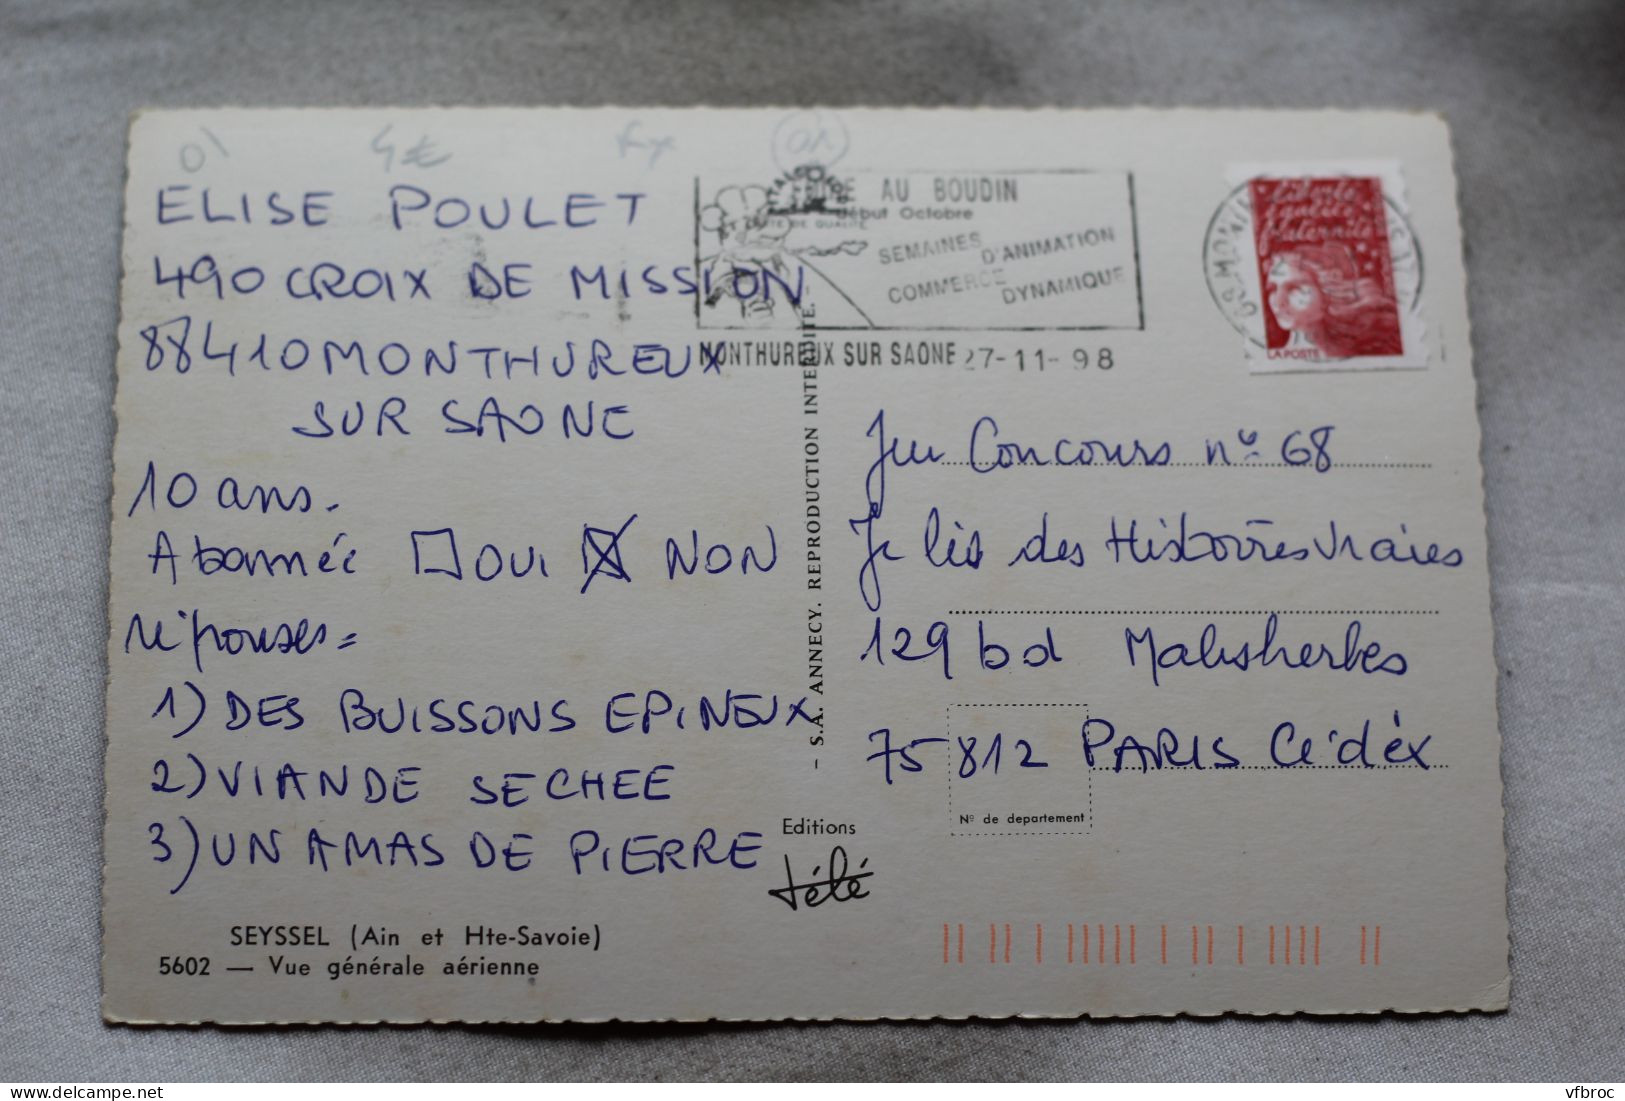 01 4€
ELISE POULET
490 CROIX DE MISSION
88410 MONTHUREUX
SUR SAONE
10 ans.
Abonnée OUI NON
réponses =
1) DES BUISSONS EPINEUX
2) VIANDE SECHEE
3) UN AMAS DE PIERRE
SEYSSEL (Ain et Hte-Savoie)
5602 — Vue générale aérienne
- S.A. ANNECY. REPRODUCTION INTERDITE.
Editions
télé
AU BOUDIN
début Octobre
DE QUALITÉ
SEMAINES D'ANIMATION
COMMERCE DYNAMIQUE
MONTHUREUX SUR SAONE 27-11-98
Liberté
Égalité
Fraternité
LA POSTE
Jeu Concours n° 68
Je lis des Histoires Vraies
129 bd Malesherbes
75 812 PARIS Cédéx
Nº de departement
vfbroc